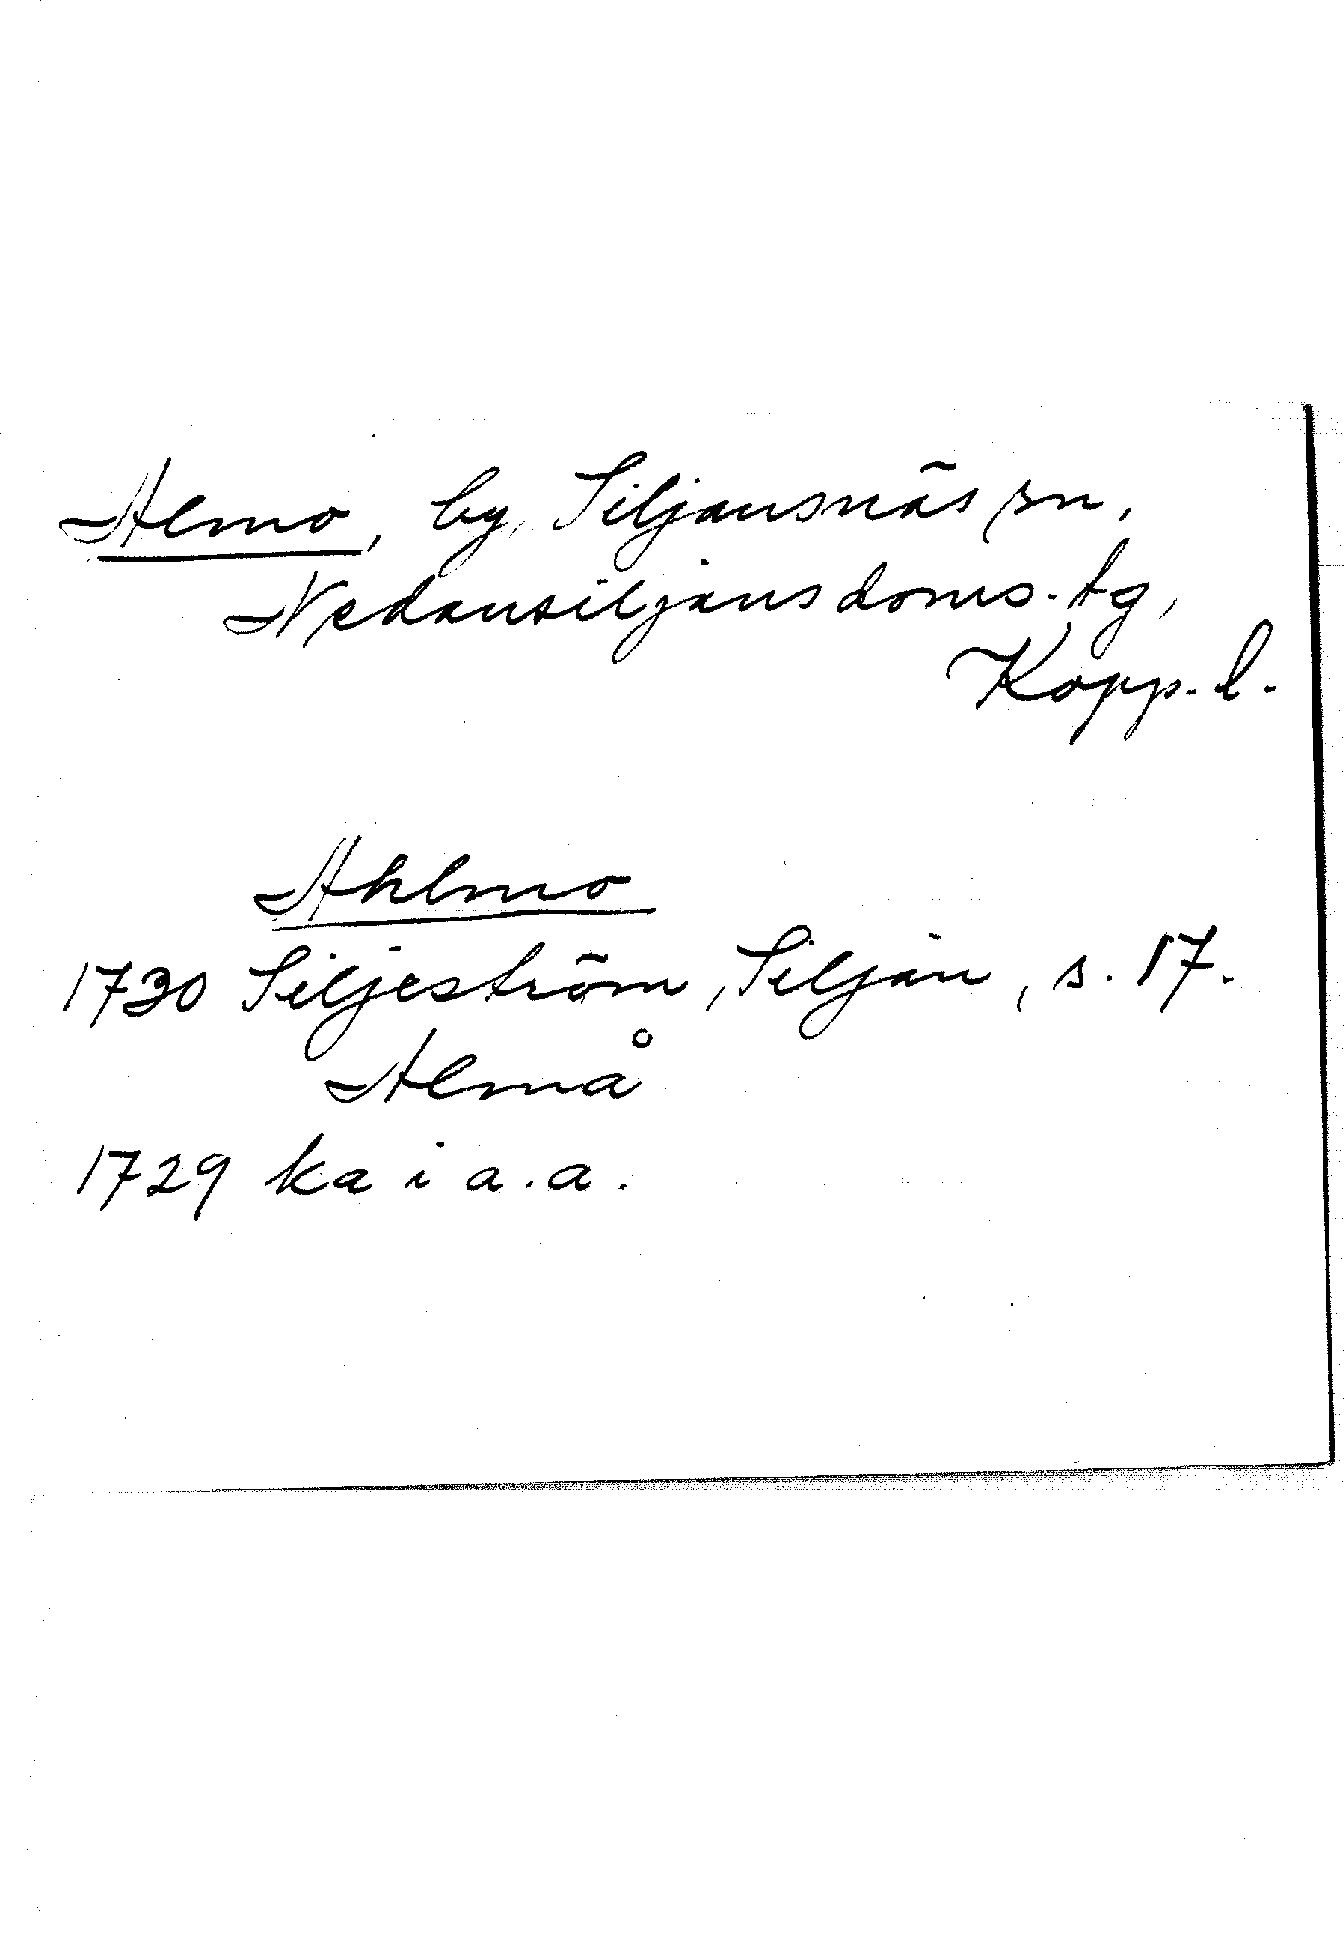 Almo, by, Siljansnäs sn,
Nedansiljans doms. tg,
Kopp. l.
Ahlmo
1730 Siljeström, Siljan, s. 17.
Almå
1729 ka i a.a.